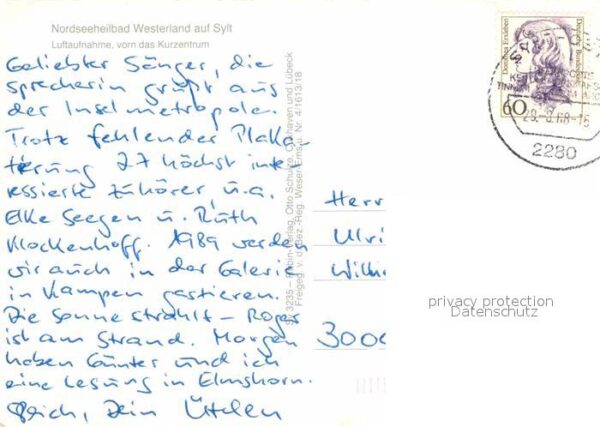 Nordseeheilbad Westerland auf Sylt
Luftaufnahme, vorn das Kurzentrum
Geliebter Sänger, die
sprecherin grüßt aus
der Inselmetropole.
Trotz fehlender Plaka-
tierung 27 höchst inter-
essierte Zuhörer, u.a.
Elke Seegen u. Ruth
Klockenhoff. 1989 werden
wir auch in der Galerie
in Kampen gastieren.
Die Sonne strahlt – Roger
ist am Strand. Morgen
haben Günter und ich
eine Lesung in Elmshorn.
Dein
Herr
Ulri
Wilh
3000
60
Deutsche Bundespost
2280
privacy protection
Datenschutz